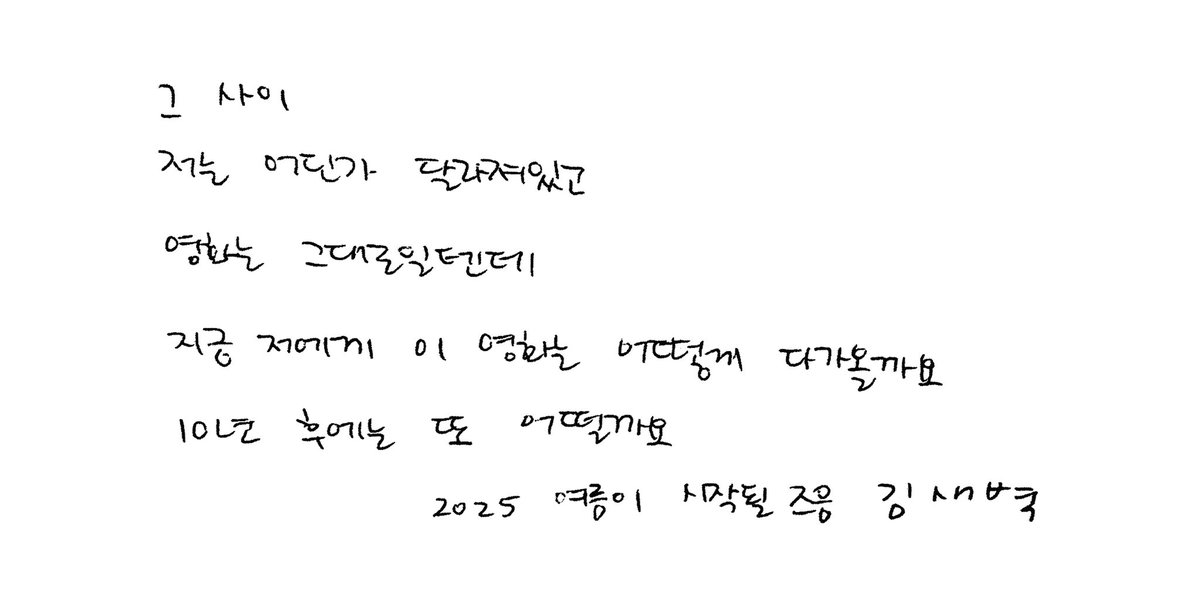 그 사이
저는 어딘가 달라져있고
영화는 그대로일텐데
지금 저에게 이 영화는 어떻게 다가올까요
10년 후에는 또 어떨까요
2025 여름이 시작될 즈음 김새벽